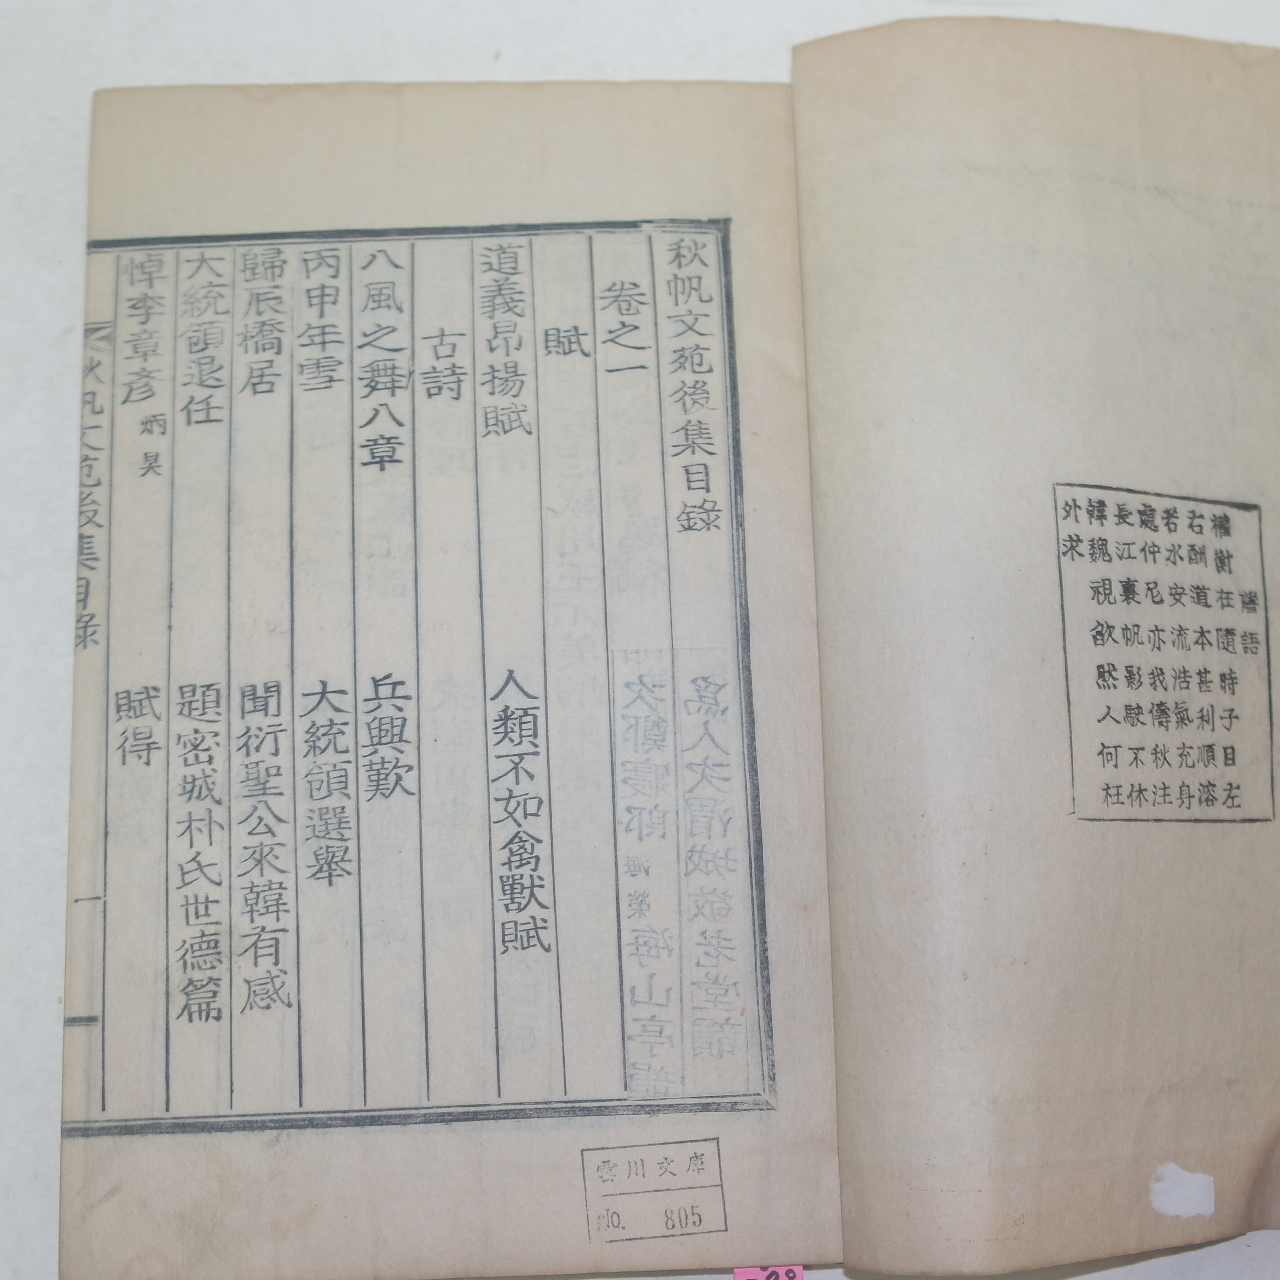 語
權衡在隨時子目左
右酬道本甚利順溶
若水安流浩氣充身
處仲尼亦我儔秋注
長江裏帆影駛不休
韓魏視欿然人何枉
外求
秋帆文苑後集目錄
卷之一
賦
道義昂揚賦 人類不如禽獸賦
古詩
八風之舞八章 兵興歎
丙申年雪 大統領選舉
歸辰橋居 聞衍聖公來韓有感
大統領退任 題密城朴氏世德篇
悼李章彦 炳昊 賦得
秋帆文苑後集目錄 一
雲川文庫
No. 805